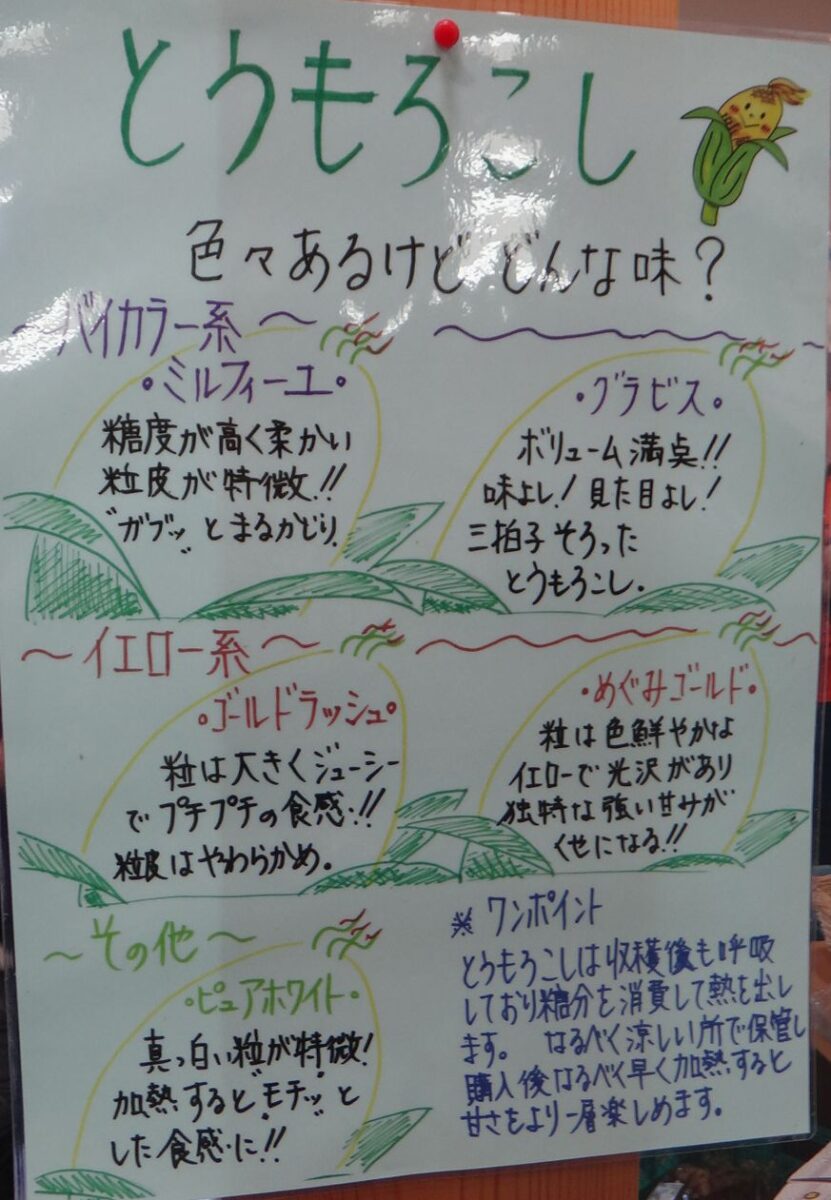 とうもろこし
色々あるけど どんな味?
〜バイカラー系〜
・ミルフィーユ・
糖度が高く柔かい
粒皮が特徴!!
"ガブッ"とまるかじり
・グラビス・
ボリューム満点!!
味よし!見た目よし!
三拍子そろった
とうもろこし.
〜イエロー系〜
・ゴールドラッシュ・
粒は大きくジューシー
でプチプチの食感!!
粒皮はやわらかめ。
・めぐみゴールド・
粒は色鮮やかな
イエローで光沢があり
独特な強い甘みが
くせになる!!
〜その他〜
・ピュアホワイト・
真っ白い粒が特徴!
加熱すると"モチッ"と
した食感に!!
※ワンポイント
とうもろこしは収穫後も呼吸
しており糖分を消費して熱を出し
ます。 なるべく涼しい所で保管し
購入後なるべく早く加熱すると
甘さをより一層楽しめます。